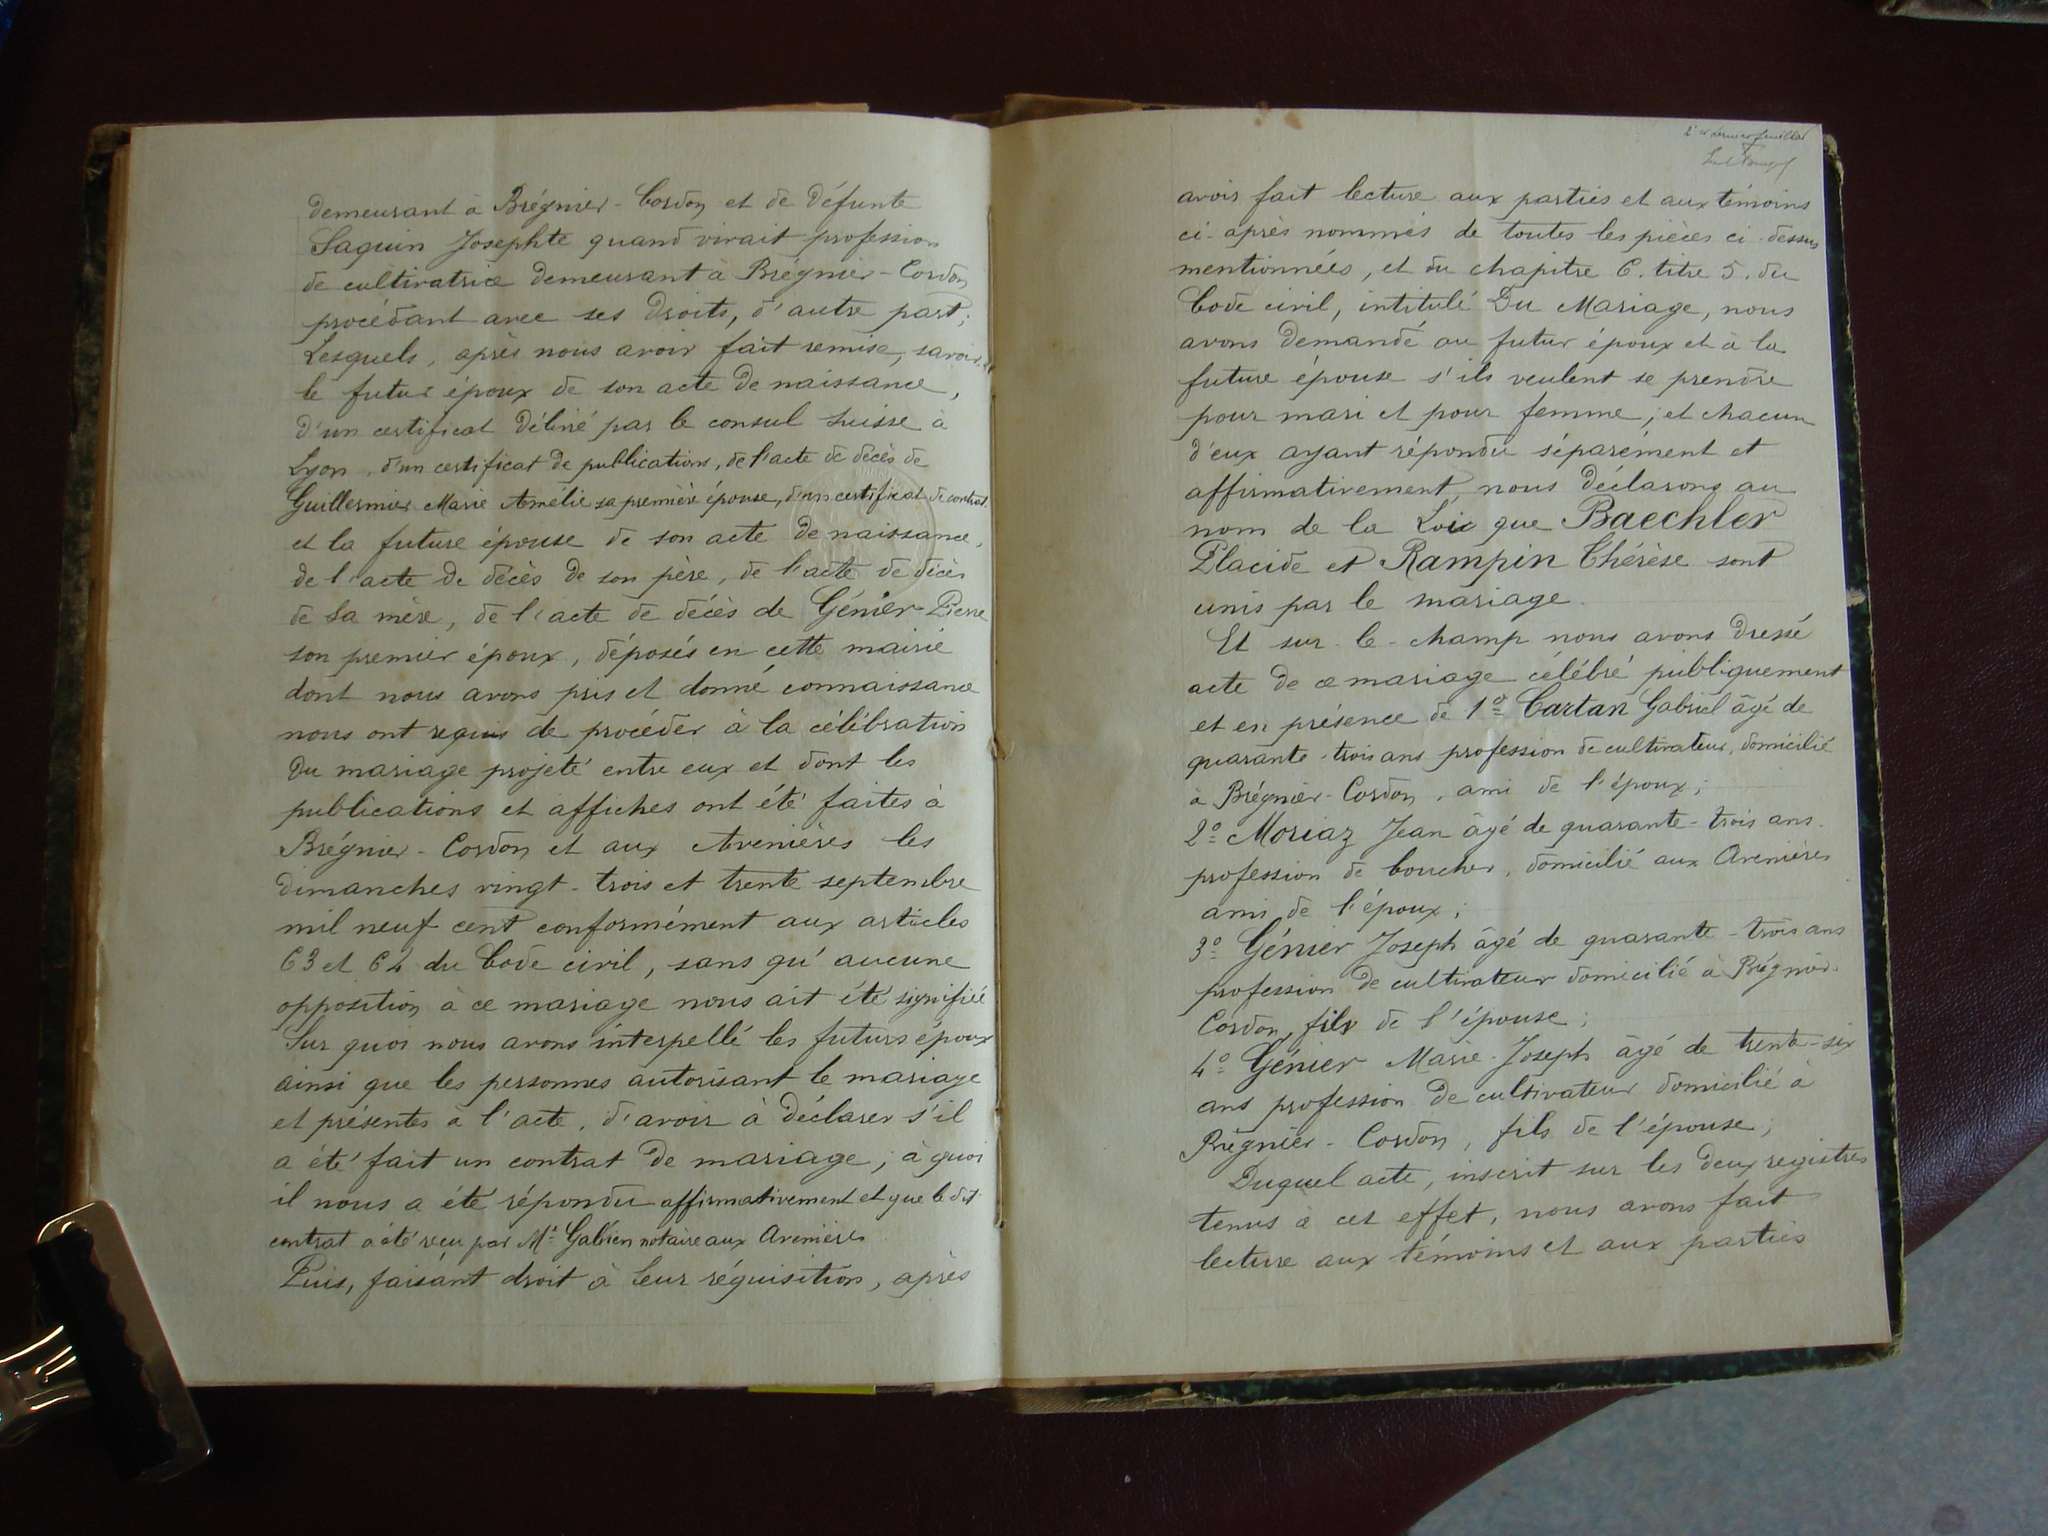 demeurant à Brégnier-Cordon et de défunte
Saguin Josephte quand vivait profession
de cultivatrice demeurant à Brégnier-Cordon
procédant avec ses droits, d'autre part;
Lesquels, après nous avoir fait remise, savoir:
le futur époux de son acte de naissance,
d'un certificat délivré par le consul suisse à
Lyon, d'un certificat de publications, de l'acte de décès de
Guillermier Marie Amélie sa première épouse, d'un certificat de contrat
et la future épouse de son acte de naissance,
de l'acte de décès de son père, de l'acte de décès
de sa mère, de l'acte de décès de Génier Pierre
son premier époux, déposés en cette mairie
dont nous avons pris et donné connaissance
nous ont requis de procéder à la célébration
du mariage projeté entre eux et dont les
publications et affiches ont été faites à
Brégnier-Cordon et aux Avenières les
dimanches vingt-trois et trente septembre
mil neuf cent conformément aux articles
63 et 64 du Code civil, sans qu'aucune
opposition à ce mariage nous ait été signifiée
Sur quoi nous avons interpellé les futurs époux
ainsi que les personnes autorisant le mariage
et présentes à l'acte, d'avoir à déclarer s'il
a été fait un contrat de mariage; à quoi
il nous a été répondu affirmativement et que le dit
contrat a été reçu par Me Gabien notaire aux Avenières
Puis, faisant droit à leur réquisition, après
2e et dernier feuillet
avoir fait lecture aux parties et aux témoins
ci-après nommés de toutes les pièces ci-dessus
mentionnées, et du chapitre 6. titre 5. du
Code civil, intitulé Du Mariage, nous
avons demandé au futur époux et à la
future épouse s'ils veulent se prendre
pour mari et pour femme; et chacun
d'eux ayant répondu séparément et
affirmativement, nous déclarons au
nom de la Loi que Baechler
Placide et Rampin Thérèse sont
unis par le mariage.
Et sur-le-champ nous avons dressé
acte de ce mariage célébré publiquement
et en présence de 1º Cartan Gabriel âgé de
quarante-trois ans profession de cultivateur, domicilié
à Brégnier-Cordon, ami de l'époux;
2º Moriaz Jean âgé de quarante-trois ans
profession de boucher, domicilié aux Avenières
ami de l'époux;
3º Génier Joseph âgé de quarante-trois ans
profession de cultivateur domicilié à Brégnier-
Cordon, fils de l'épouse;
4º Génier Marie-Joseph âgé de trente-six
ans profession de cultivateur domicilié à
Brégnier-Cordon, fils de l'épouse;
Duquel acte, inscrit sur les deux registres
tenus à cet effet, nous avons fait
lecture aux témoins et aux parties